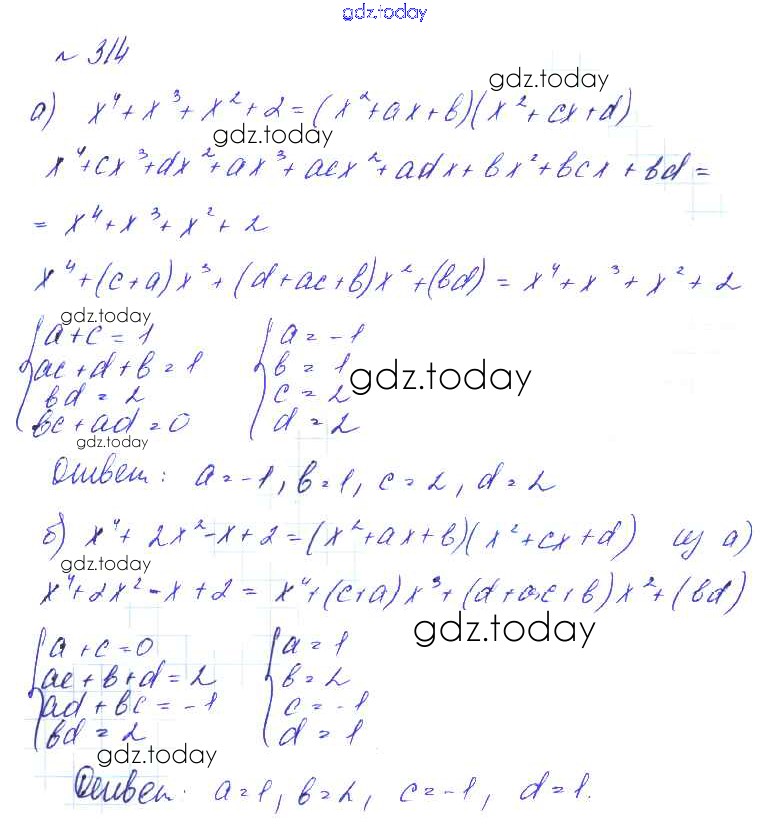 gdz.today
№ 314
gdz.today
а) x⁴ + x³ + x² + 2 = (x² + ax + b)(x² + cx + d)
gdz.today
x⁴ + cx³ + dx² + ax³ + acx² + adx + bx² + bcx + bd =
= x⁴ + x³ + x² + 2
x⁴ + (c+a)x³ + (d+ac+b)x² + (bd) = x⁴ + x³ + x² + 2
gdz.today
a + c = 1 a = -1
ac + d + b = 1 b = 1
gdz.today
bd = 2 c = 2
bc + ad = 0 d = 2
gdz.today
Ответ: a = -1, b = 1, c = 2, d = 2
б) x⁴ + 2x² - x + 2 = (x² + ax + b)(x² + cx + d) из а)
gdz.today
x⁴ + 2x² - x + 2 = x⁴ + (c+a)x³ + (d+ac+b)x² + (bd)
gdz.today
a + c = 0 a = 1
ac + b + d = 2 b = 2
ad + bc = -1 c = -1
bd = 2 d = 1
gdz.today
Ответ: a = 1, b = 2, c = -1, d = 1.